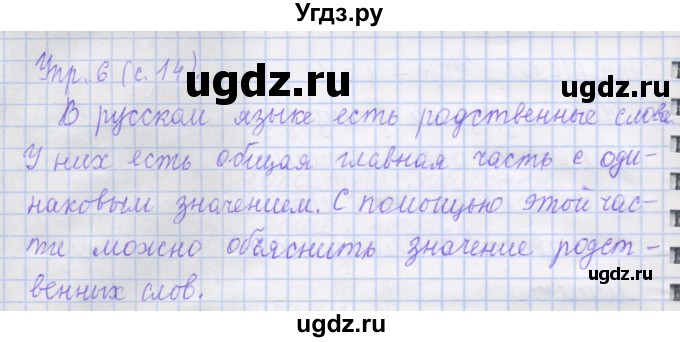 Угдз.ру
Упр. 6 (с. 14).
ugdz.ru
В русском языке есть родственные слова
ugdz.ru
У них есть общая главная часть с оди-
ugdz.ru
наковым значением. С помощью этой час-
ти можно объяснить значение родст-
ugdz.ru
венных слов.
ugdz.ru